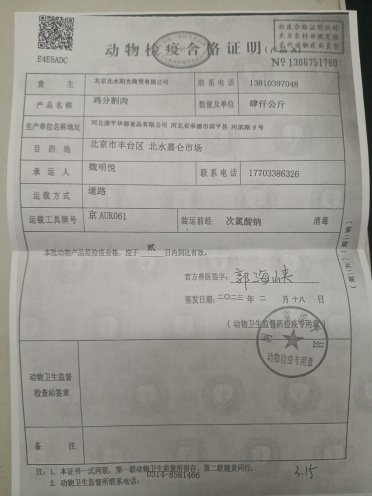 E4E5ADC
动物检疫合格证明(产品B)
№ 1306751780
货 主 北京北水阳光商贸有限公司 联系电话 13810397048
产品名称 鸡分割肉 数量及单位 肆仟公斤
生产单位名称地址 河北滦平华都食品有限公司 河北省承德市滦平县
目的地 北京市丰台区 北水嘉仑市场
承运人 魏明悦 联系电话 17703386326
运载方式 道路
运载工具牌号 京AUK061 装运前经 次氯酸钠 消毒
本批动物产品经检疫合格,应于 贰 日内到达有效。
官方兽医签字: 郭海峡
签发日期: 二〇二三年 二 月 十八 日
(动物卫生监督所检疫专用章)
动物检疫专用章
动物卫生监督
检查站签章
备 注
注: 1. 本证书一式两联,第一联动物卫生监督所留存,第二联随货同行。
2. 动物卫生监督所联系电话: 0314-8581466
3.15